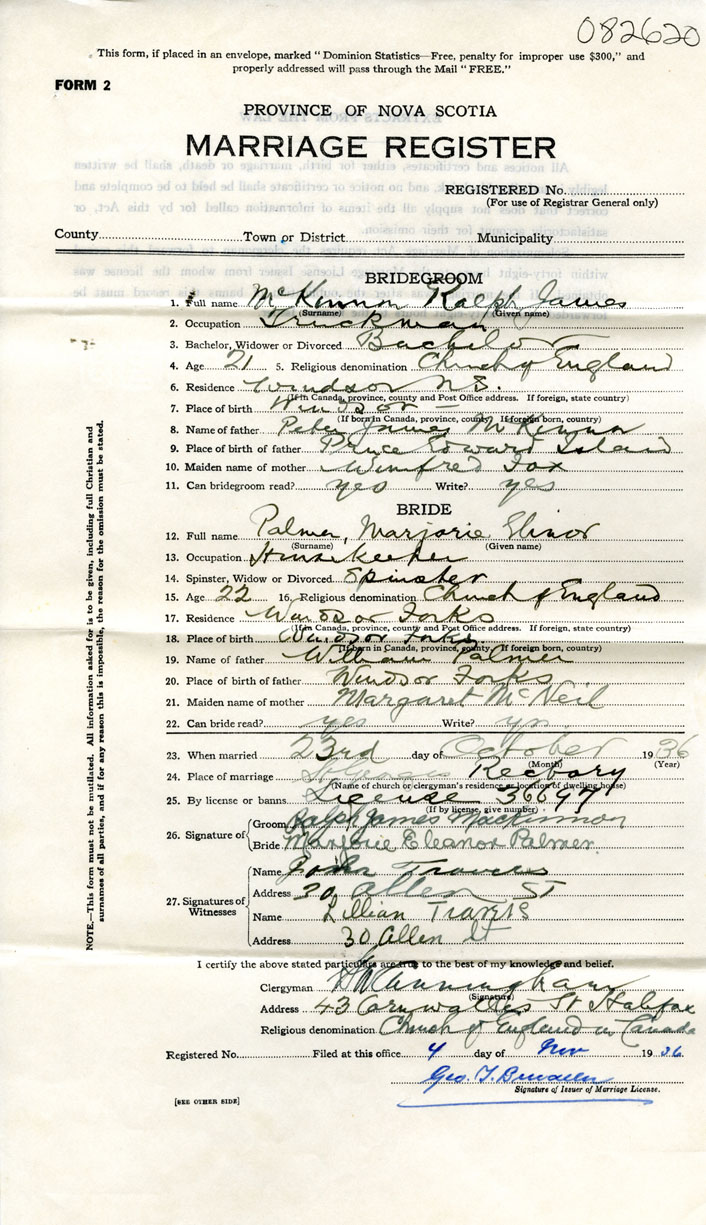 082620
This form, if placed in an envelope, marked " Dominion Statistics—Free, penalty for improper use $300," and
properly addressed will pass through the Mail " FREE."
FORM 2
PROVINCE OF NOVA SCOTIA
MARRIAGE REGISTER
REGISTERED No.
(For use of Registrar General only)
County Town or District Municipality
BRIDEGROOM
1. Full name McKinnon Ralph James
(Surname) (Given name)
2. Occupation Truckman
3. Bachelor, Widower or Divorced Bachelor
4. Age 21 5. Religious denomination Church of England
6. Residence Windsor N.S.
(If in Canada, province, county and Post Office address. If foreign, state country)
7. Place of birth Windsor
(If born in Canada, province, county. If foreign born, country)
8. Name of father Peter James McKinnon
9. Place of birth of father Prince Edward Island
10. Maiden name of mother Winifred Fox
11. Can bridegroom read? yes Write? yes
BRIDE
12. Full name Palmer, Marjorie Elinor
(Surname) (Given name)
13. Occupation Housekeeper
14. Spinster, Widow or Divorced Spinster
15. Age 22 16. Religious denomination Church of England
17. Residence Windsor Forks
(If in Canada, province, county and Post Office address. If foreign, state country)
18. Place of birth Windsor Forks
(If born in Canada, province, county. If foreign born, country)
19. Name of father William Palmer
20. Place of birth of father Windsor Forks
21. Maiden name of mother Margaret McNeil
22. Can bride read? yes Write? yes
23. When married 23rd day of October 1936
(Month) (Year)
24. Place of marriage Rectory
(Name of church or clergyman's residence or location of dwelling house)
25. By license or banns License 36697
(If by license, give number)
26. Signature of Groom Ralph James MacKinnon
Bride Marjorie Eleanor Palmer
27. Signatures of Witnesses
Name John Travis
Address 30 Allen ST
Name Lillian Travis
Address 30 Allen St
I certify the above stated particulars are true to the best of my knowledge and belief.
Clergyman Cunningham
(Signature)
Address 43 Cornwallis St Halifax
Religious denomination Church of England in Canada
Registered No. Filed at this office 4 day of Nov 1936
Geo. T.
Signature of Issuer of Marriage License.
[SEE OTHER SIDE]
NOTE.—This form must not be mutilated. All information asked for is to be given, including full Christian and
surnames of all parties, and if for any reason this is impossible, the reason for the omission must be stated.